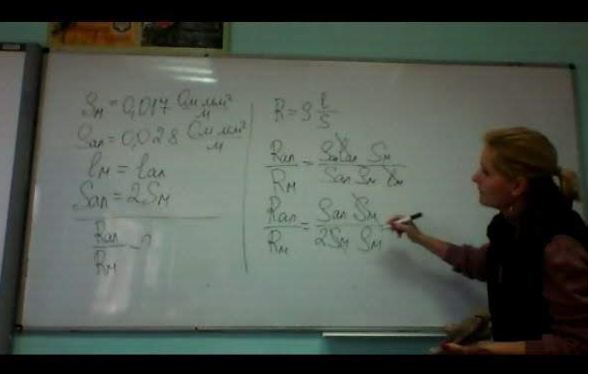 ρм = 0,017 Ом мм²/м
ρал = 0,028 Ом мм²/м
lм = lал
Sал = 2Sм
Rал/Rм - ?
R = ρ l/S
Rал/Rм = ρал lал Sм / Sал ρм lм
Rал/Rм = ρал Sм / 2Sм ρм